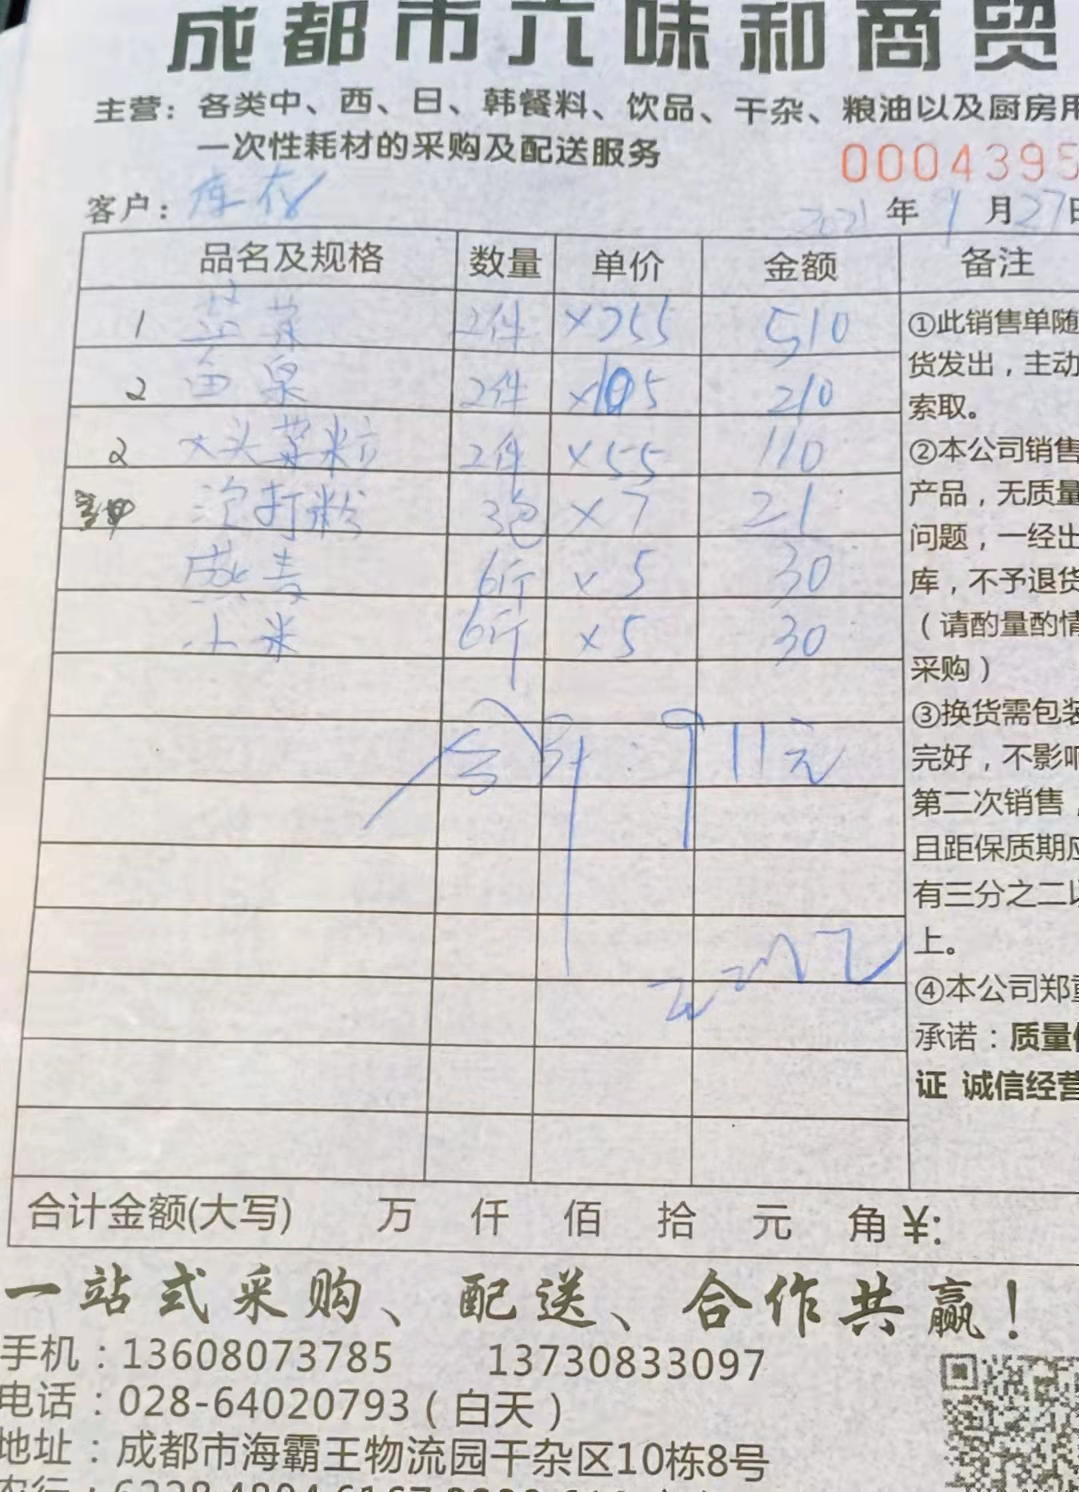 成都市六味和商贸
主营：各类中、西、日、韩餐料、饮品、干杂、粮油以及厨房用
一次性耗材的采购及配送服务
0004395
客户：库存 2021年9月27日
品名及规格 数量 单价 金额 备注
1 芸菜 2件 ×255 510
2 鱼泉 2件 ×105 210
2 大头菜粒 2件 ×55 110
泡打粉 3包 ×7 21
燕麦 6斤 ×5 30
小米 6斤 ×5 30
合计：911元
①此销售单随
货发出，主动
索取。
②本公司销售
产品，无质量
问题，一经出
库，不予退货
（请酌量酌情
采购）
③换货需包装
完好，不影响
第二次销售，
且距保质期应
有三分之二以
上。
④本公司郑重
承诺：质量保
证 诚信经营
合计金额(大写) 万 仟 佰 拾 元 角 ¥:
一站式采购、配送、合作共赢！
手机：13608073785 13730833097
电话：028-64020793（白天）
地址：成都市海霸王物流园干杂区10栋8号